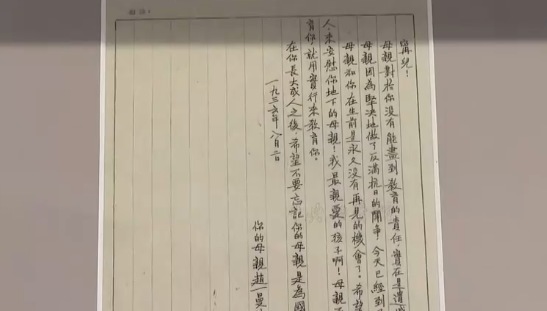 寧兒！
母親對於你没有能盡到教育的責任，實在是遺
母親因為堅决地做了反滿抗日的鬪争，今天已經到
母親和你在生前是永久没有再見的機會了。希望
人，來安慰你地下的母親！我最親愛的孩子啊！母親不
育你，就用實行來教育你。
在你長大成人之後，希望不要忘記你的母親是為國
一九三六年八月二日
你的母親趙一曼